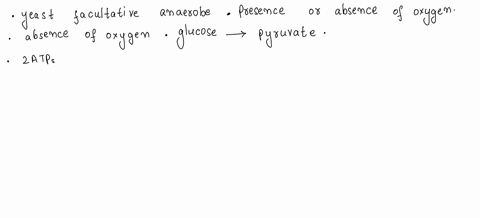 . yeast facultative anaerobe . Presence or absence of oxygen.
. absence of oxygen . glucose → pyruvate .
. 2ATPs